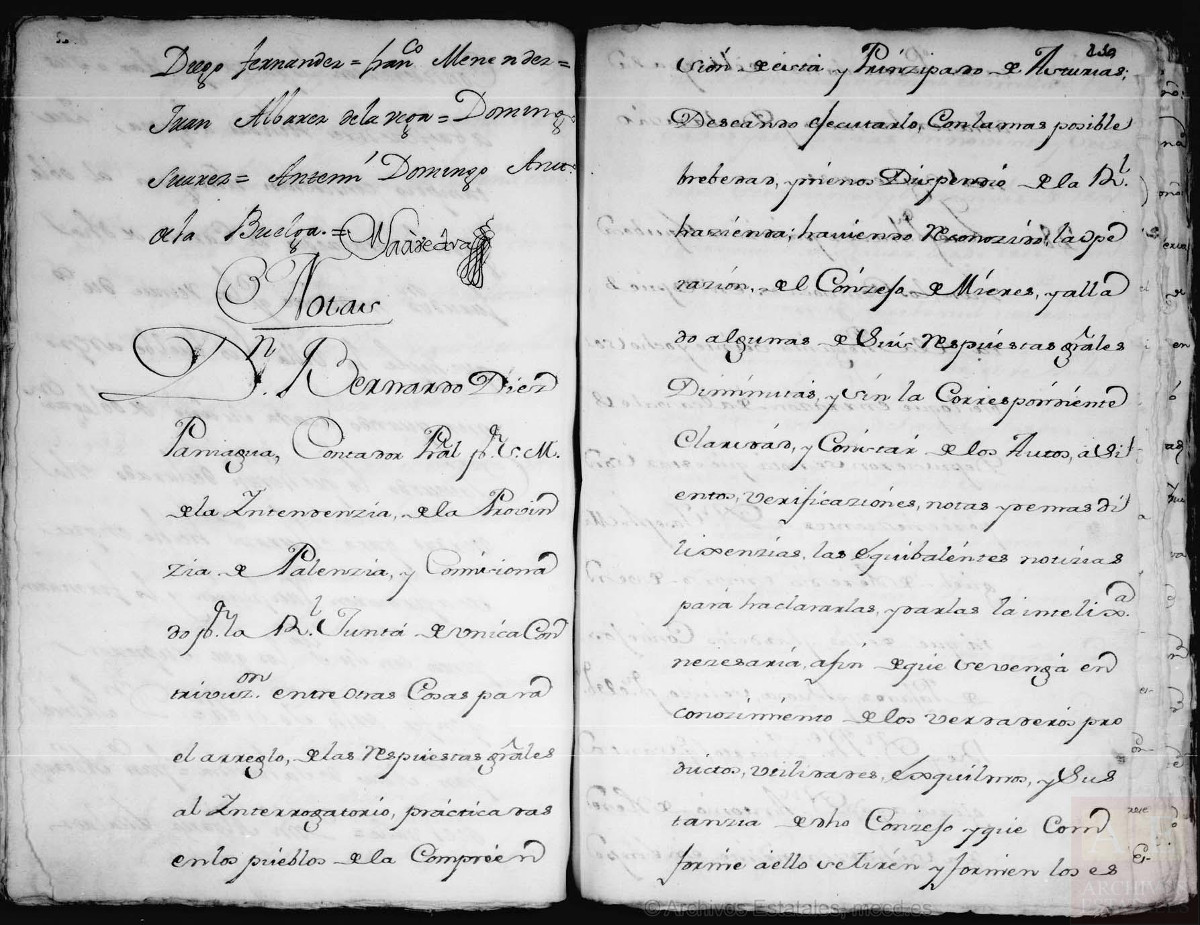 Diego fernandez = fran.co Menendez =
Juan Albarez de la vega = Domingo
Suarez = Antemi Domingo Anto.
de la Buelga. =
Notas
Dn. Bernardo Diez
Paniagua, Contador Pral pr. S. M.
de la Intendenzia, de la Provin
zia de Palenzia, y Comisiona
do pr. la Rl. Junta de vnica Con
trivuz.on entre otras Cosas para
el arreglo, de las Respuestas grales
al Interrogatorio, prácticadas
en los puéblos de la Compréen
sión de ésta y Prinzipado de Asturias;
Deseando ejecutarlo, Con la mas posible
brebedad, y ménos Dispendio de la Rl.
hazienda; haviendo Reconozido; la ope
razión, de el Conzejo de Miéres, y alla
do algunas de Sus Respuestas grales
Diminutas, y sin la Correspondiente
Claridad, y Constar de los Autos, asi
entos, verificaziónes, notas y demas di
lixenzias, las equibaléntes notizias
pará haclararlas, y darlas la intelix.a
nezesaria, afin de que se vengá en
conozimiento de los verdaderos pro
ductos, utilidades, Esquilmos, y Sus
tanzia de dho Conzejo y que Con
forme aello se tirén y formen los es
© Archivos Estatales, mecd.es
ARCHIVOS
ESTATALES